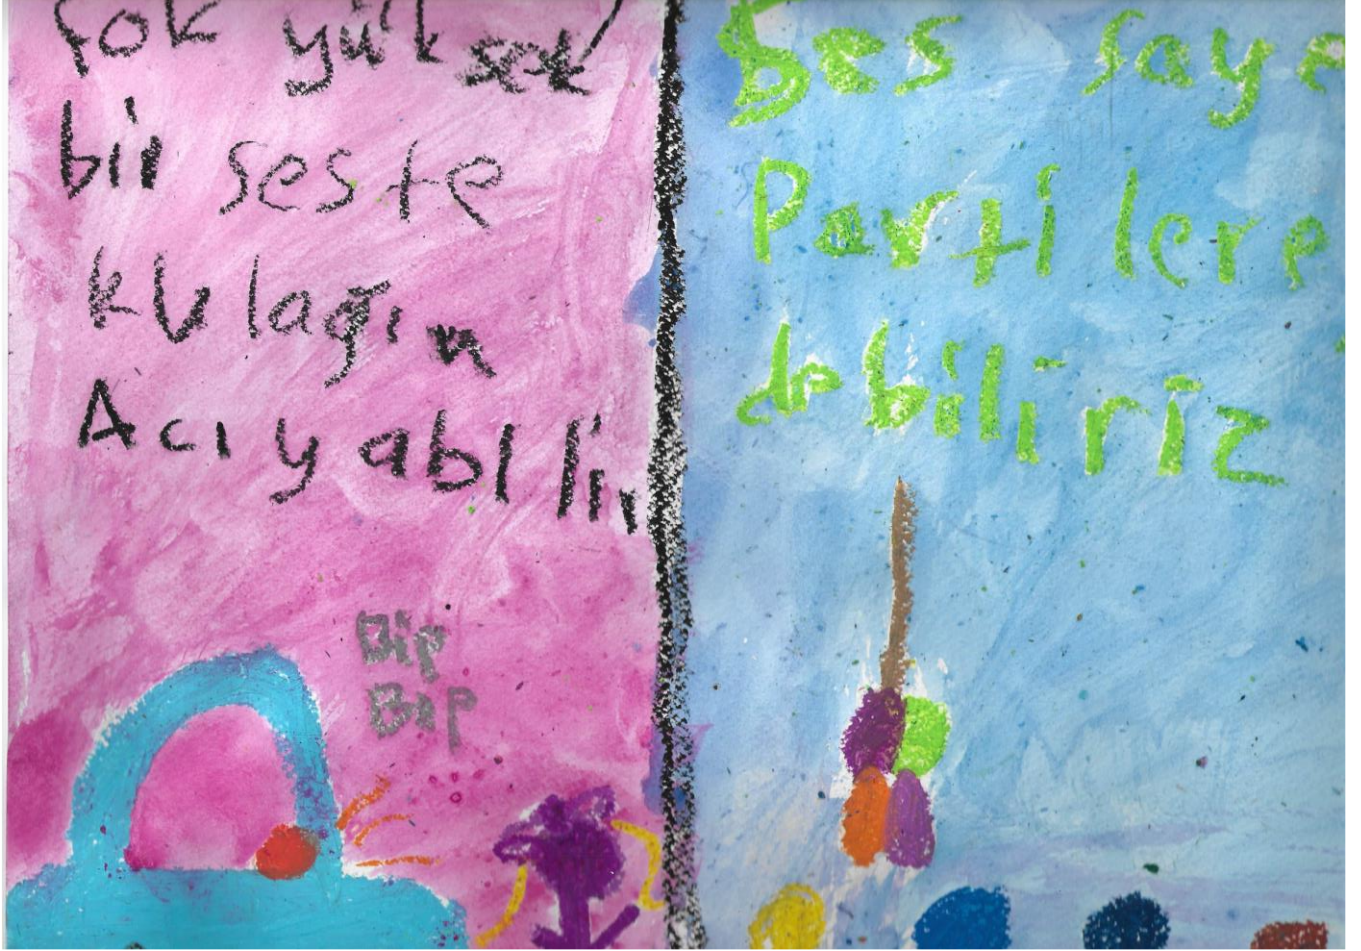 Çok yüksek
bir seste
kulağın
Acıyabılir
Bip
Bip
Ses saye
Partilere
debiliriz